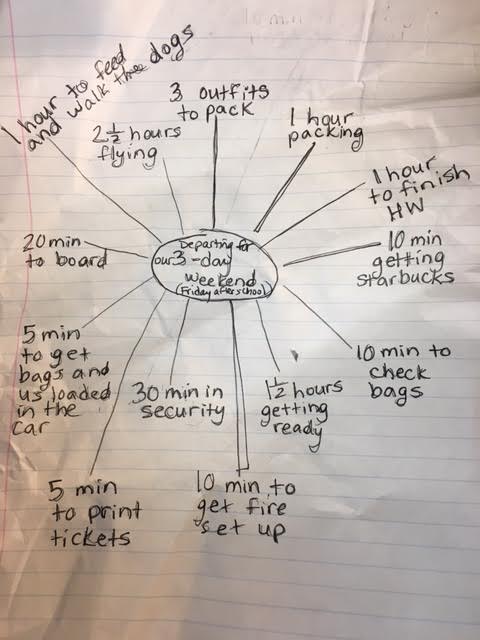 1 hour to feed
and walk three dogs
3 outfits
to pack
2½ hours
flying
1 hour
packing
1 hour
to finish
HW
20 min
to board
Departing for
our 3-day
weekend
(Friday after school)
10 min
getting
Starbucks
5 min
to get
bags and
us loaded
in the
car
30 min in
security
1½ hours
getting
ready
10 min to
check
bags
5 min
to print
tickets
10 min to
get fire
set up